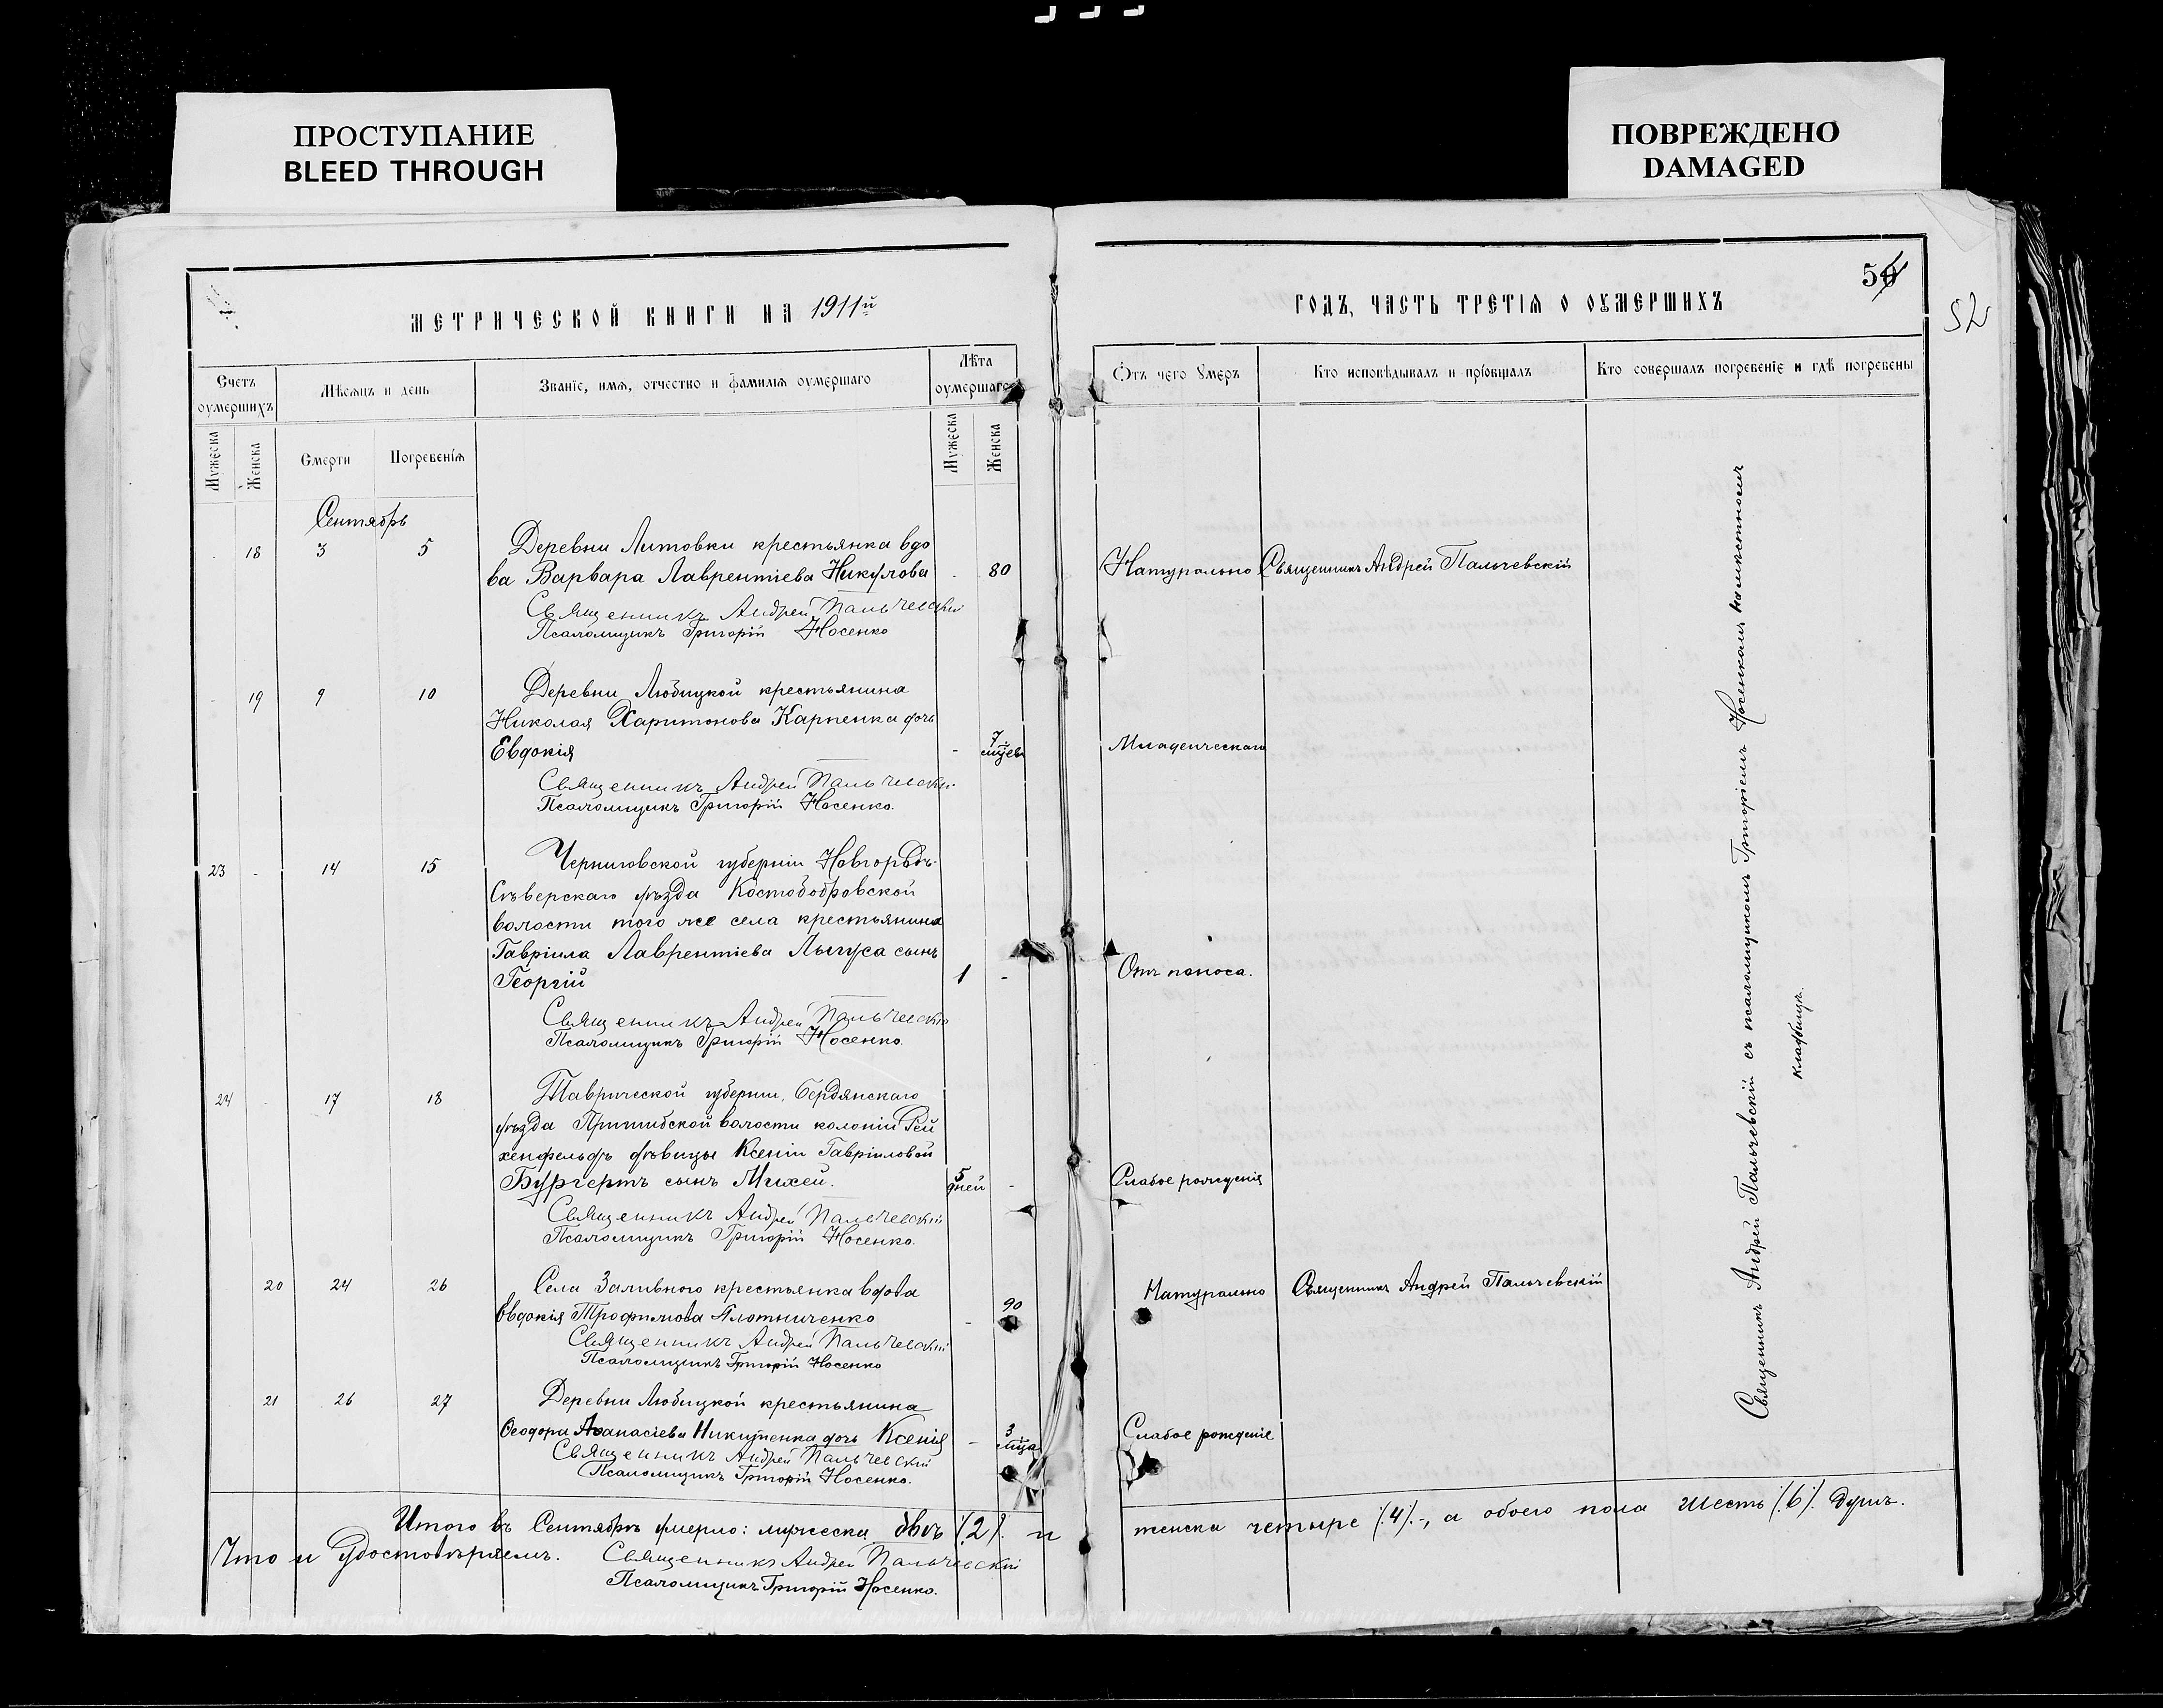 ПРОСТУПАНИЕ
BLEED THROUGH
ПОВРЕЖДЕНО
DAMAGED
МЕТРИЧЕСКОЙ КНИГИ НА 1911й
Счетъ оумершихъ
Мѣсяцъ и день
Званіе, имя, отчество и фамилія оумершаго
Лѣта оумершаго
Мужеска
Женска
Смерти
Погребенія
Мужеска
Женска
Сентябрь
18 3 5 Деревни Литовки крестьянка вдо
ва Варвара Лаврентіева Никулова - 80
Священникъ Андрей Пальчевскій
Псаломщикъ Григорій Носенко
19 9 10 Деревни Любицкой крестьянина
Николая Харитонова Карпенка дочь
Евдокія - 7 мцев
Священникъ Андрей Пальчевскій
Псаломщикъ Григорій Носенко.
23 - 14 15 Черниговской губерніи Новгородъ-
Сѣверскаго уѣзда Костобобровской
волости того же села крестьянина
Гавріила Лаврентіева Лыгуса сынъ
Георгій 1 -
Священникъ Андрей Пальчевскій
Псаломщикъ Григорій Носенко.
24 - 17 18 Таврической губерніи, Бердянскаго
уѣзда Пришибской волости колоніи Рей
хенфельдъ дѣвицы Ксеніи Гавріиловой
Бургертъ сынъ Михей. 5 дней -
Священникъ Андрей Пальчевскій
Псаломщикъ Григорій Носенко.
20 24 26 Села Заливного крестьянка вдова
Евдокія Трофимова Плотниченко - 90
Священникъ Андрей Пальчевскій
Псаломщикъ Григорій Носенко
21 26 27 Деревни Любицкой крестьянина
Ѳеодора Аѳанасіева Никитенка дочь Ксенія - 3 мца
Священникъ Андрей Пальчевскій
Псаломщикъ Григорій Носенко.
Итого въ Сентябрѣ умерло: мужеска двѣ /.2/. и
Что и удостовѣряемъ. Священникъ Андрей Пальчевскій
Псаломщикъ Григорій Носенко.
50
52
ГОДЪ, ЧАСТЬ ТРЕТІЯ О ОУМЕРШИХЪ
Ѿтъ чего умеръ
Кто исповѣдывалъ и пріобщалъ
Кто совершалъ погребеніе и гдѣ погребены
Натурально Священникъ Андрей Пальчевскій
Младенческаго
Отъ поноса.
Слабое рожденія
Натурально Священникъ Андрей Пальчевскій
Слабое рожденіе
Священникъ Андрей Пальчевскій съ псаломщикомъ Григоріемъ Носенкомъ на мѣстномъ
кладбищѣ.
женска четыре /.4/.-, а обоего пола шесть /.6/. душъ.